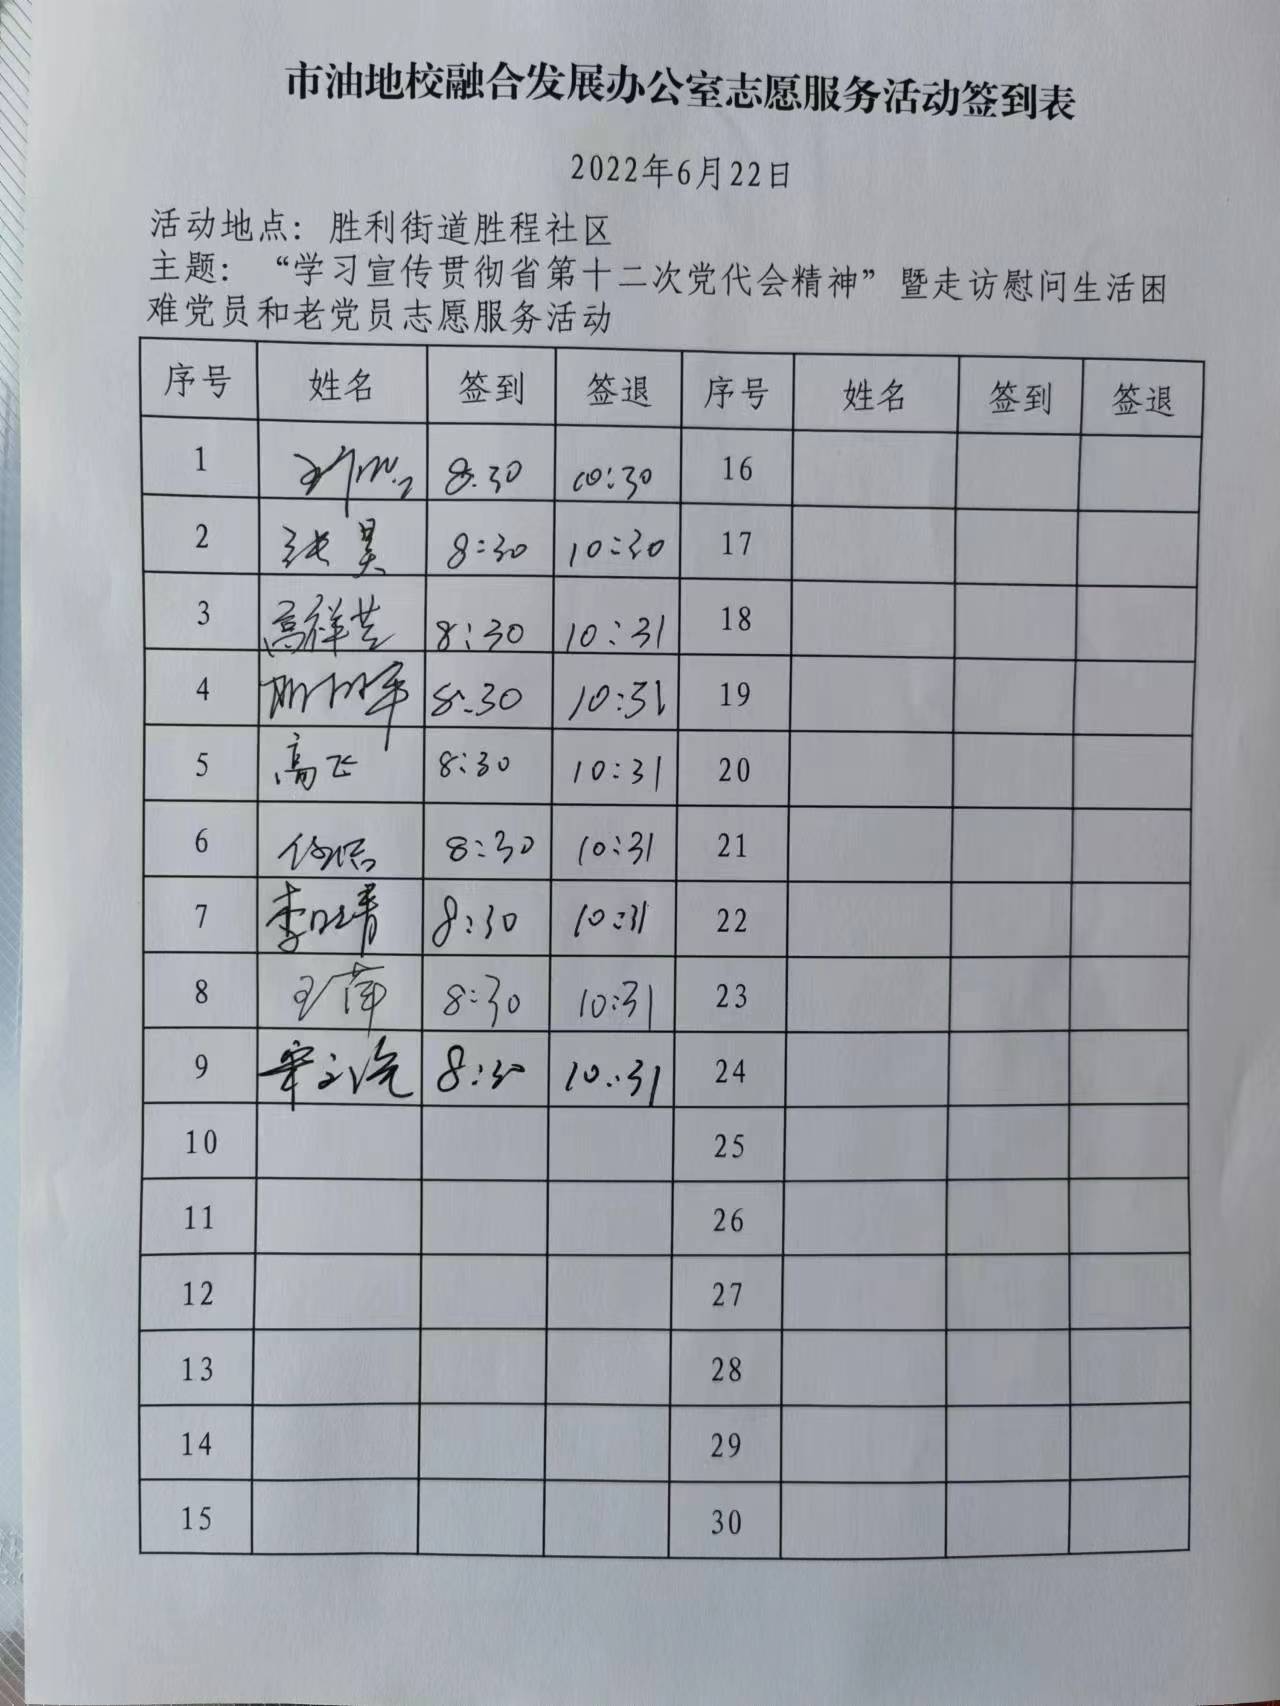 市油地校融合发展办公室志愿服务活动签到表
2022年6月22日
活动地点：胜利街道胜程社区
主题：“学习宣传贯彻省第十二次党代会精神”暨走访慰问生活困
难党员和老党员志愿服务活动
序号 姓名 签到 签退 序号 姓名 签到 签退
1 8:30 10:30 16
2 张昊 8:30 10:30 17
3 高祥芸 8:30 10:31 18
4 8:30 10:31 19
5 高飞 8:30 10:31 20
6 8:30 10:31 21
7 李晓青 8:30 10:31 22
8 王萍 8:30 10:31 23
9 8:30 10:31 24
10 25
11 26
12 27
13 28
14 29
15 30